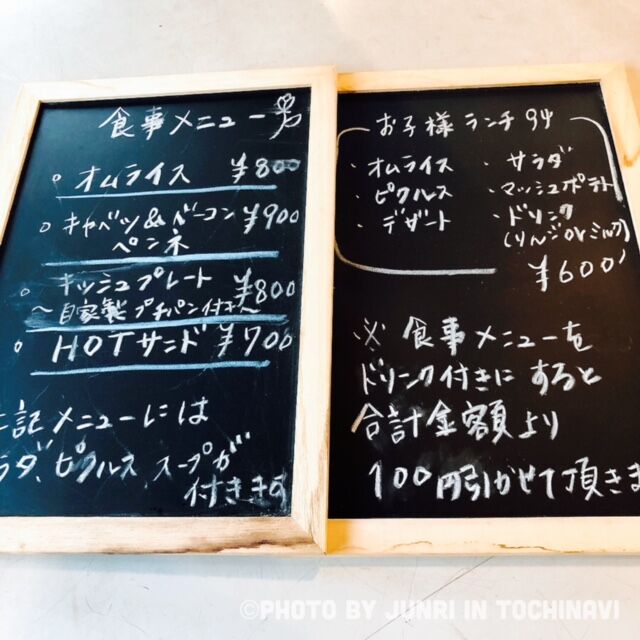 食事メニュー
。オムライス ¥800
。キャベツ&ベーコン ¥900
ペンネ
。キッシュプレート ¥800
〜自家製プチパン付き〜
。HOTサンド ¥700
記メニューには
ラダ、ピクルス、スープが
付きます
お子様ランチ
・オムライス ・サラダ
・ピクルス ・マッシュポテト
・デザート ・ドリンク
(りんごorミルク)
¥600
※食事メニューを
ドリンク付きにすると
合計金額より
100円引かせて頂きま
©PHOTO BY JUNRI IN TOCHINAVI